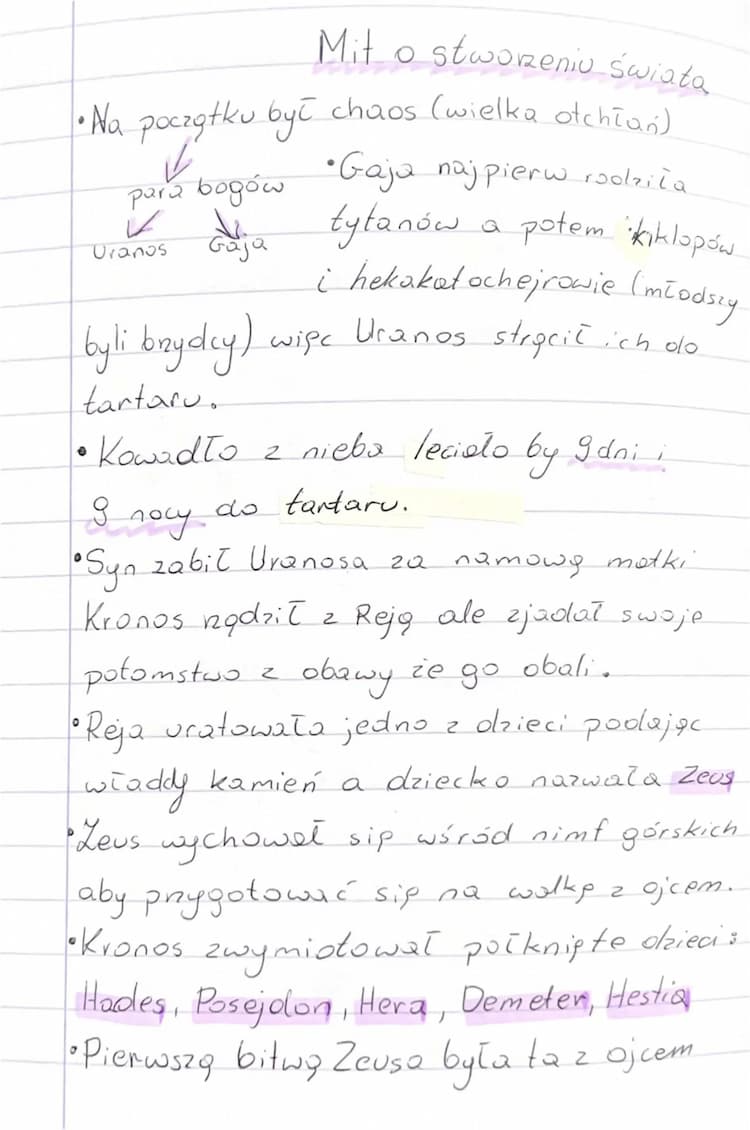 Mit o stworzeniu świata
•Na początku był chaos (wielka otchłań)
para bogów
Uranos Gaja
•Gaja najpierw rodziła
tytanów a potem kiklopów
i hekakatochejrowie (młodszy
byli brzydcy) więc Uranos strącił ich do
tartaru.
•Kowadło z nieba leciało by 9 dni i
9 nocy do tartaru.
•Syn zabił Uranosa za namową matki
Kronos rządził z Reją ale zjadał swoje
potomstwo z obawy że go obali.
•Reja uratowała jedno z dzieci podając
właddy kamień a dziecko nazwała Zeus
•Zeus wychował się wśród nimf górskich
aby przygotować się na walkę z ojcem.
•Kronos zwymiotował połknięte dzieci:
Hades, Posejdon, Hera, Demeter, Hestia
•Pierwszą bitwą Zeusa była ta z ojcem